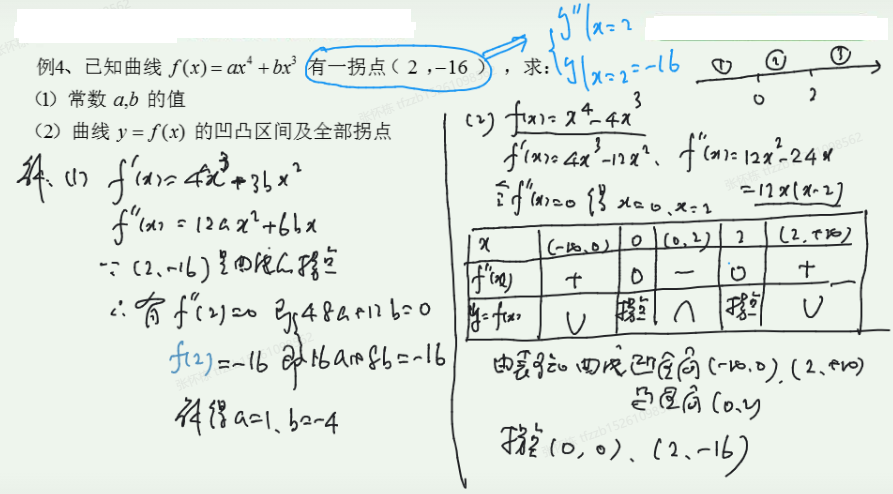 例4、已知曲线 f(x)=ax⁴+bx³ 有一拐点（2,−16），求：
y''|x=2
y|x=2=-16
(1) 常数 a,b 的值
(2) 曲线 y=f(x) 的凹凸区间及全部拐点
① ② ③
0 2
解、(1) f'(x)=4ax³+3bx²
f''(x)=12ax²+6bx
∵ (2,-16)是曲线的拐点
∴ 有 f''(2)=0 即 48a+12b=0
f(2)=-16 即 16a+8b=-16
解得a=1、b=-4
(2) f(x)=x⁴-4x³
f'(x)=4x³-12x²、f''(x)=12x²-24x
=12x(x-2)
令f''(x)=0 得 x=0、x=2
x (-∞,0) 0 (0,2) 2 (2,+∞)
f''(x) + 0 − 0 +
y=f(x) ∪ 拐点 ∩ 拐点 ∪
由表可知 曲线凹区间(-∞,0)、(2,+∞)
凸区间(0,2)
拐点(0,0)、(2,-16)